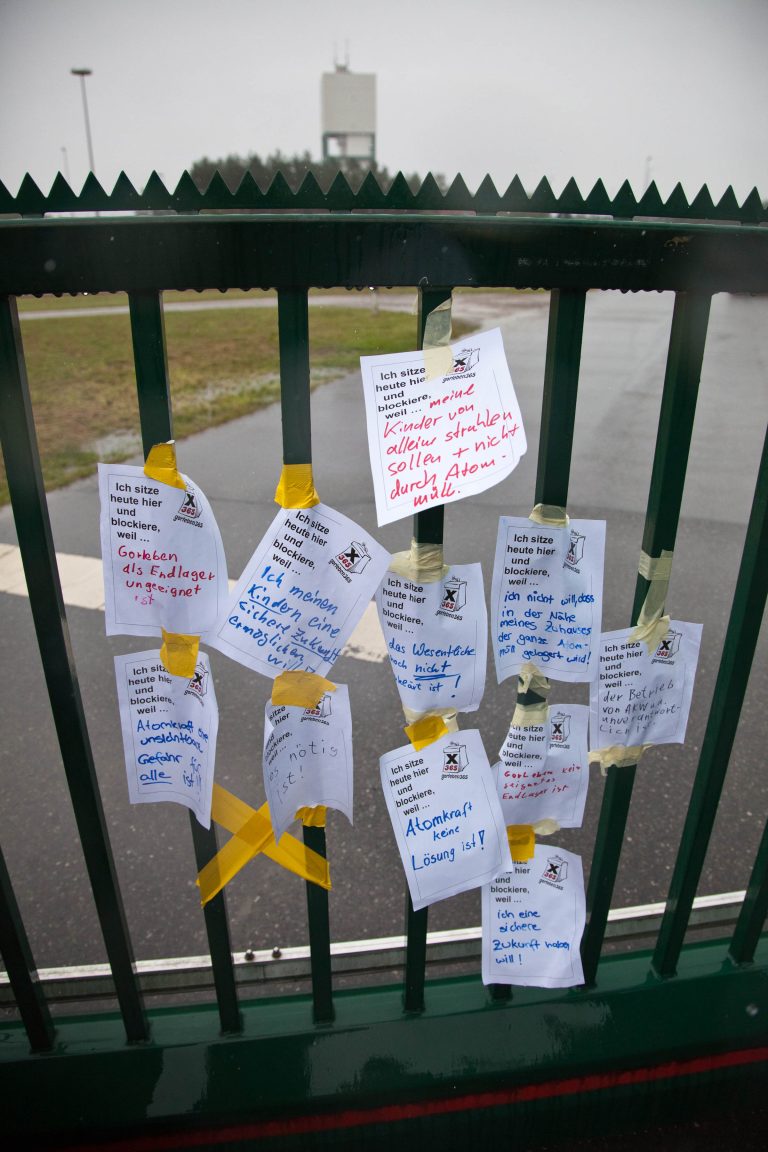 Ich sitze
heute hier
und
blockiere,
weil ... meine
Kinder von
allein strahlen
sollen + nicht
durch Atom-
müll.
X
365
gorleben365
Ich sitze
heute hier
und
blockiere,
weil ...
Gorleben
als Endlager
ungeeignet
ist
X
365
gorleben365
Ich sitze
heute hier
und
blockiere,
weil ...
Ich meinen
Kindern eine
sichere Zukunft
ermöglichen
will!
X
365
gorleben365
Ich sitze
heute hier
und
blockiere,
weil ...
das Wesentliche
noch nicht
ist!
X
365
gorleben365
Ich sitze
heute hier
und
blockiere,
weil ...
ich nicht will, dass
in der Nähe
meines Zuhauses
der ganze Atom-
müll gelagert wird!
X
365
gorleben365
Ich sitze
heute hier
und
blockiere,
weil ...
der Betrieb
von AKW
unverantwort-
lich ist
X
365
gorleben365
Ich sitze
heute hier
und
blockiere,
weil ...
Atomkraft eine
Gefahr für
alle ist
X
365
sitze
heute hier
und
blockiere,
weil ...
es nötig
ist!
365
gorleben365
Ich sitze
heute hier
und
blockiere,
weil ...
Atomkraft
keine
Lösung ist!
X
365
gorleben365
sitze
heute hier
und
blockiere,
weil ...
Gorleben kein
geeignetes
Endlager ist
X
365
gorleben365
heute hier
und
blockiere,
weil ...
ich eine
sichere
Zukunft haben
will!
X
365
gorleben365